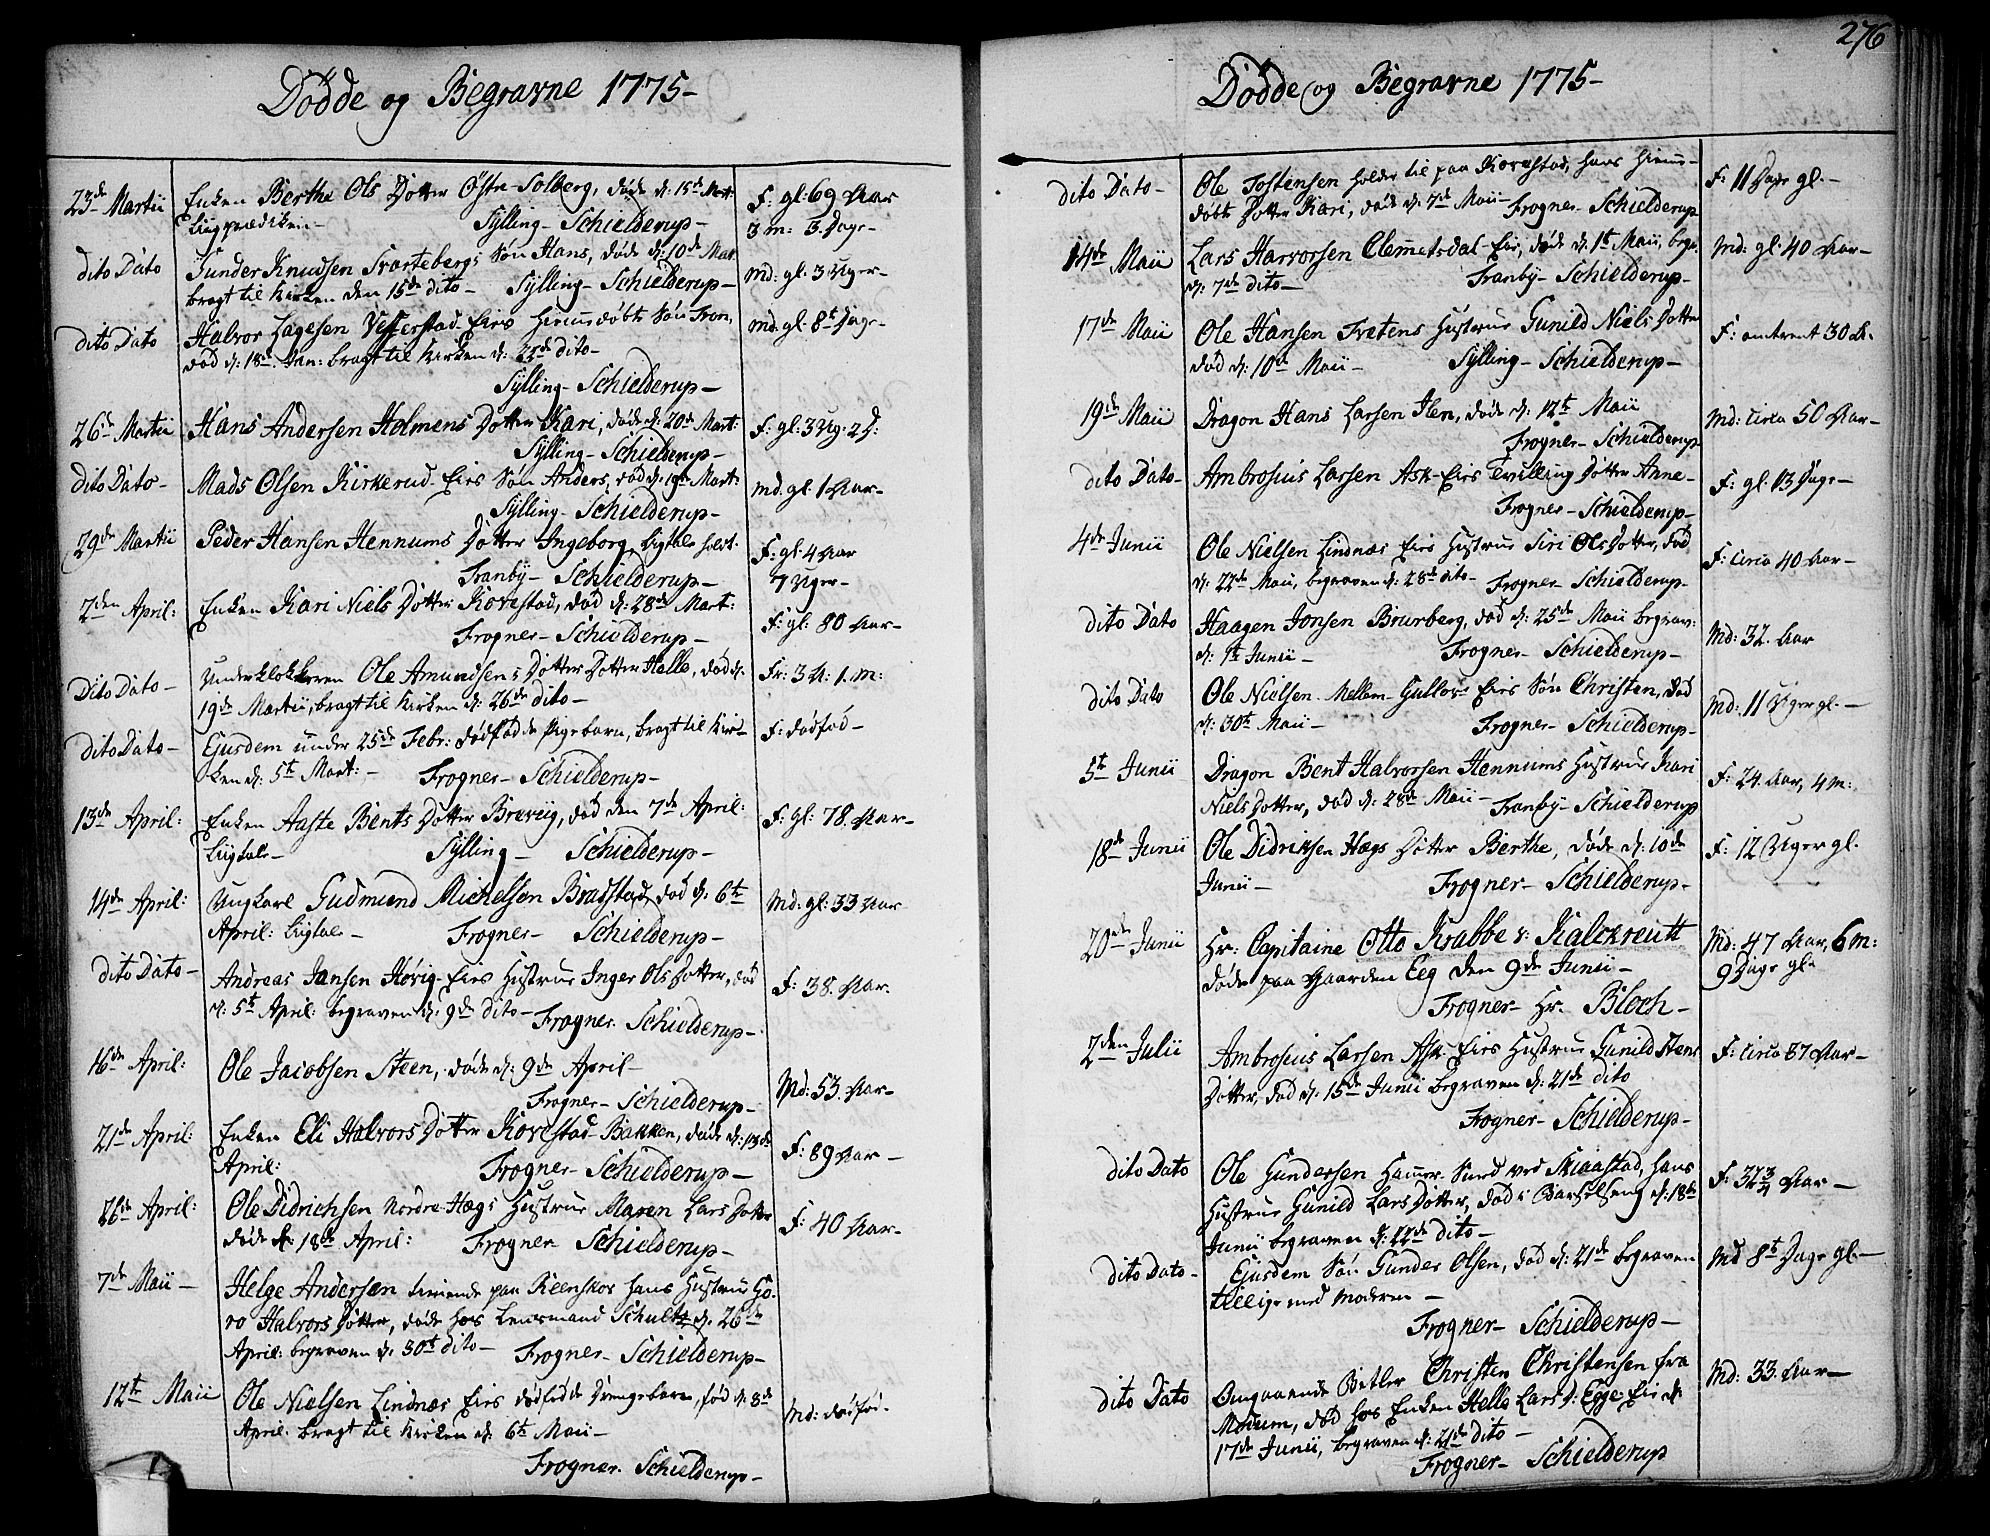 Dødde og Begravne 1775-
23de Martii
Enken Berthe Ols Dotter Østre Solberg, døde d: 15de Mart:
Liigprædiken-
Sylling- Schielderup-
F: gl: 69 Aar
3 m: 3 Dage-
dito Dato
Gunder Knudsen Svartebergs Søn Hans, døde d: 10de Mar.
bragt til Kirken den 15de dito-
Sylling- Schielderup-
Md: gl: 3 Uger-
dito Dato
Halvor Lagesen Vefferstad-Eies hiemmedøbte Søn Iron,
død d: 18de Jan: bragt til Kirken d: 23de dito-
Sylling- Schielderup-
Md: gl: 8t Dage-
26de Martii
Hans Andersen Holmens Dotter Kari, døde d: 20de Mart:
Sylling- Schielderup-
F: gl: 3 Ug: 2 D:
dito Dato-
Mads Olsen Kirkerud-Eies Søn Anders, død d: 19de Mart:
Sylling- Schielderup-
Md: gl: 1 Aar-
29de Martii
Peder Hansen Hennums Dotter Ingeborg, Liigtale holdt.
Franby- Schielderup-
F: gl: 4 Aar
7 Uger-
2den April:
Enken Kari Niels Dotter Korestad, død d: 28de Mart:
Frogner- Schielderup-
F: gl: 80 Aar-
Dito Dato-
Underklokkeren Ole Amundsens Dotters Dotter Helle, død d.
19de Martii, bragt til Kirken d: 26de dito-
Fr: 3 A: 1. m:
Dito Dato-
Ejusdem under 25de Febr: dødfødde Pigebarn, bragt til Kir-
ken d: 5t Mart:-
Frogner- Schielderup-
F: dødfød-
13de April:
Enken Aaste Bents Dotter Breviig, død den 7de April:
Liigtale-
Sylling- Schielderup-
F: gl: 78. Aar-
14de April:
Ungkarl Gudmund Michelsen Bradstad, død d: 6te
April: Liigtale-
Frogner- Schielderup-
Md: gl: 33 Aar
Dito Dato-
Andreas Jansen Hørig-Eies Hustrue Inger Ols Dotter, død
d: 5t April: begraven d: 9de dito-
Frogner- Schielderup-
F: 38. Aar.
16de April:
Ole Jacobsen Steen, døde d: 9de April-
Frogner- Schielderup-
Md: 53. Aar-
21de April:
Enken Eli Halvors Dotter Korestad-Bakken, døde d: 13de
April:
Frogner- Schielderup-
F: 89 Aar-
26de April:
Ole Didrichsen Nordre Hægs Hustrue Maren Lars Dotter
døde d: 18de April:
Frogner- Schielderup-
F: 40 Aar-
7de Maii-
Helge Andersen tienende paa Reenskor hans Hustrue Go-
ro Halvors Dotter, døde hos Lensmand Schultz d: 26de
April: begraven d: 30t dito-
Frogner- Schielderup-
12te Maii
Ole Nielsen Lindnæs Eies dødfødde Drengebarn, fød d: 8de
April: bragt til Kirken d: 6t Maii-
Frogner- Schielderup-
Md: dødfød-
276
Dødde og Begravne 1775-
dito Dato-
Ole Tostensen holder til paa Korestad, hans hiemme-
døbte Dotter Kari, døde d: 7de Maii-
Frogner- Schielderup
F: 11 Dage gl.-
14de Maii
Lars Harvorsen Clemetsdal-Eie, døde d: 1t Maii, begr.
d: 7de dito-
Franby- Schielderup-
Md: gl: 40 Aar-
17de Maii
Ole Hansen Tvetens Hustrue Gunild Niels Dotter
død d: 10de Maii-
Sylling- Schielderup-
F: omtrent 30 A.
19de Maii
Dragon Hans Larsen Ilen, døde d: 12te Maii
Frogner- Schielderup
Md: circa 50 Aar-
dito Dato-
Ambrosius Larsen Ask-Eies Tvilling Dotter Anne-
Frogner- Schielderup-
F: gl: 13 Dage-
4de Junii
Ole Nielsen Lindnæs Eies Hustrue Siri Ols Dotter, død
d: 22de Maii, begraven d: 28de dito-
Frogner- Schielderup-
F: circa 40 Aar-
dito Dato
Haagen Jonsen Brurberg, død d: 25de Maii begrav:
d: 1t Junii-
Frogner- Schielderup-
Md: 32. Aar
dito Dato
Ole Nielsen Mellem-Gullovs Eies Søn Christen, død
d: 30te Maii-
Frogner- Schielderup-
Md: 11 Uger gl.-
5te Junii
Dragon Bent Halvorsen Hennums Hustrue Kari
Niels Dotter, død d: 28de Maii-
Franby- Schielderup
F: 24. Aar, 4 m:
18de Junii
Ole Didriksen Hægs Dotter Berthe, døde d: 10de
Junii-
Frogner- Schielderup-
F: 12 Uger gl.
20de Junii
Hr: Capitaine Otto Krabbe v: Kalckreuth
døde paa Gaarden Eeg den 9de Junii-
Frogner- Hr. Bloch-
Md: 47 Aar, 6 m:
9 Dage gl.
2den Julii
Ambrosius Larsen Ask-Eies Hustrue Gunild Stens
Dotter, død d: 15de Junii begraven d: 21de dito
Frogner- Schielderup-
F: circa 87 Aar-
dito Dato
Ole Gundersen Hammer-Smed ved Skiaastad, hans
Hustrue Gunild Lars Dotter, død i Barselseng d: 18de
Junii begraven d: 22de dito-
F: 32 3/4 Aar-
dito Dato-
Ejusdem Søn Gunder Olsen, død d: 21de begraven
tillige med Moderen-
Frogner- Schielderup-
Md 8t Dage gl.-
dito Dato
Omgaaende Betler Christen Christensen fra
Modum, død hos Enken Helle Lars D: Egge-Eie d:
17de Junii, begraven d: 21de dito-
Frogner- Schielderup
Md: 33. Aar-